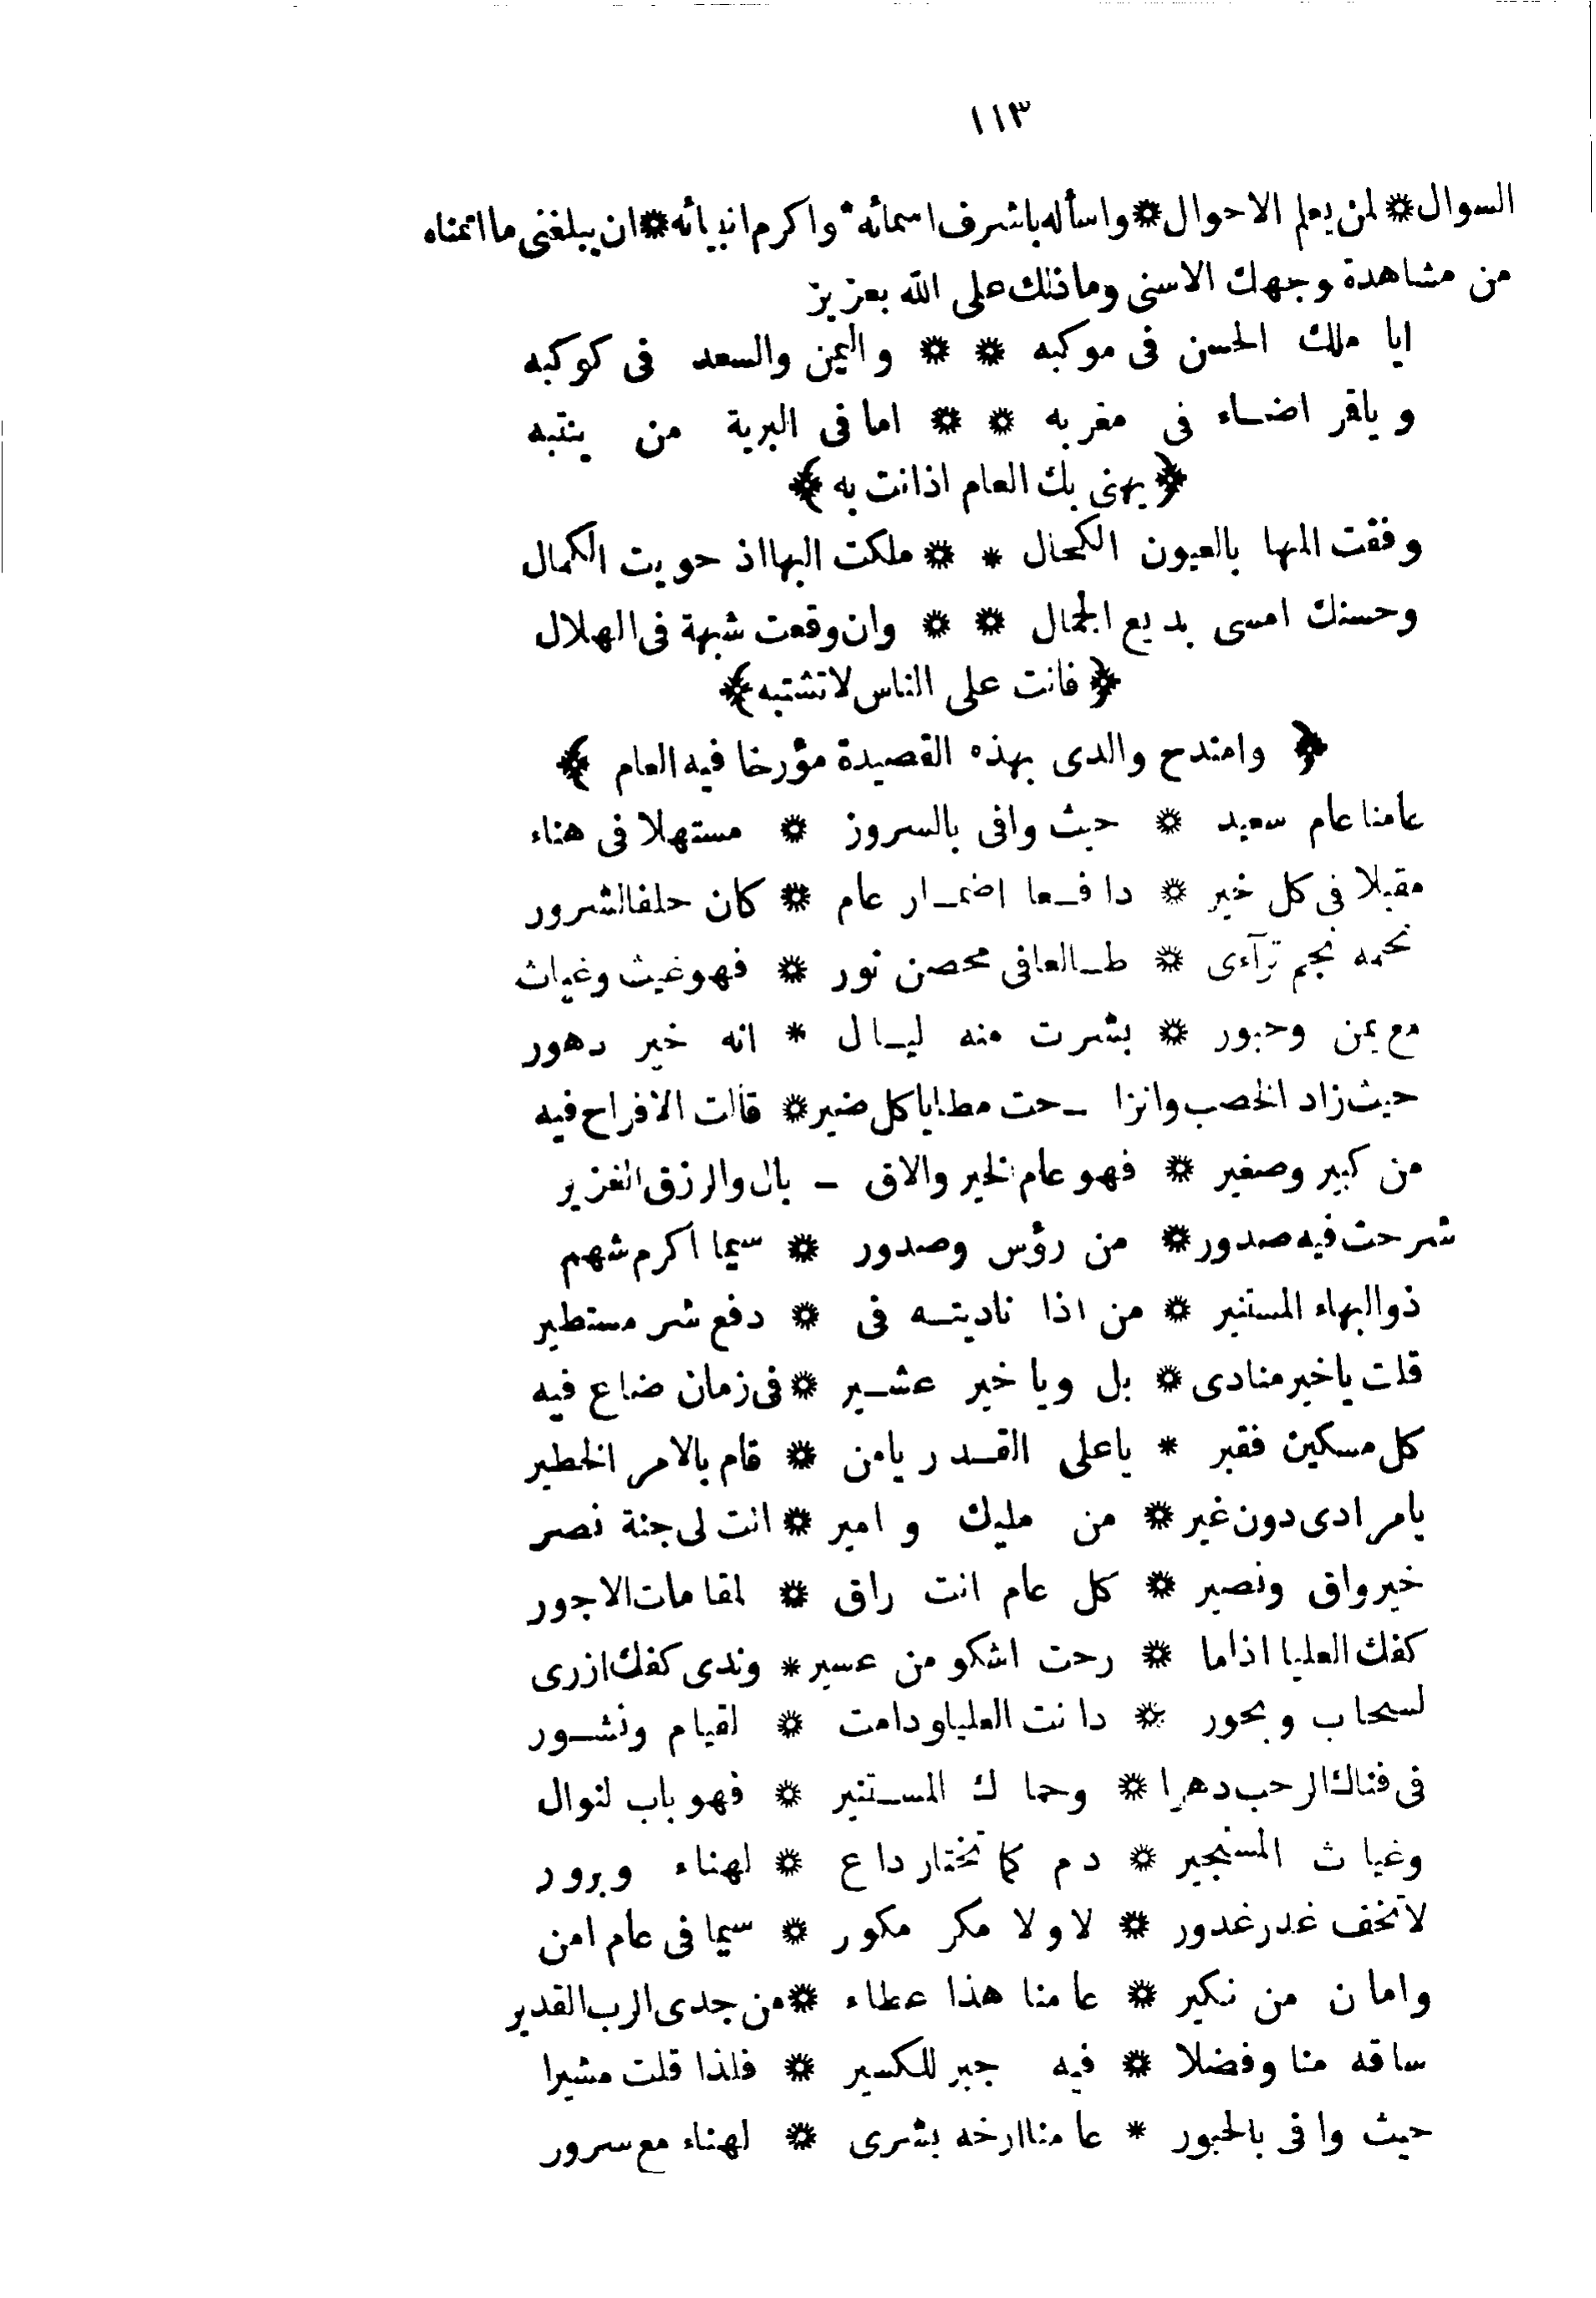 ١١٣
السوال * لمن يعلم الاحوال * واسأله باشرف اسمائه * واكرم انبيائه * ان يبلغنى ما اتمناه
من مشاهدة وجهك الاسنى وما ذلك على الله بعزيز
ايا ملك الحسن فى موكبه * * واليمن والسعد فى كوكبه
و ياقر اضاء فى مغربه * * اما فى البرية من ينتبه
﴿ يهنى بك العام اذ انت به ﴾
وفقت المها بالعيون الكحال * * ملكت البها اذ حويت الكمال
وحسنك امسى بديع الجمال * * وان وقعت شبهة فى الهلال
﴿ فانت على الناس لا تشتبه ﴾
﴿ وامتدح والدى بهذه القصيدة مؤرخا فيه العام ﴾
عامنا عام سعيد * حيث وافى بالسروز * مستهلا فى هناء
مقبلا فى كل خير * دافعا اضرار عام * كان حلفا لشرور
نجمه نجم ترآءى * طالعا فى محصن نور * فهو غيث وغياث
مع يمن وحبور * بشرت منه ليال * انه خير دهور
حيث زاد الخصب وانزا ـ حت مطايا كل ضير * قالت الافراح فيه
من كبير وصغير * فهو عام الخير والاق ـ بال والرزق الغزير
شرحت فيه صدور * من رؤس وصدور * سيما اكرم شهم
ذو البهاء المستنير * من اذا ناديته فى * دفع شر مستطير
قلت يا خير منادى * بل ويا خير عشير * فى زمان ضاع فيه
كل مسكين فقير * يا على القدر يا من * قام بالامر الخطير
يا مرادى دون غير * من مليك و امير * انت لى جنة نصر
خير واق ونصير * كل عام انت راق * لمقامات الاجور
كفك العليا اذا ما * رحت اشكو من عسير * وندى كفك ازرى
لسحاب وبحور * دانت العليا ودامت * لقيام ونشور
فى فناك الرحب دهرا * وحماك المستنير * فهو باب لنوال
وغياث المستجير * دم كما تختار داع * لهناء وبرور
لا تخف غدر غدور * لا ولا مكر مكور * سيما فى عام امن
وامان من نكير * عامنا هذا عطاء * من جدى الرب القدير
ساقه منا وفضلا * فيه جبر للكسير * فلذا قلت مشيرا
حيث وافى بالحبور * عامنا ارخه بشرى * لهناء مع سرور